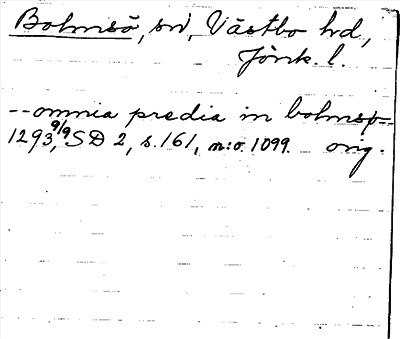 Bolmsö, sn, Västbo hd,
Jönk. l.
-- omnia predia in bolmsø --
1293, 9/9 SD 2, s. 161, n:o 1099. orig.